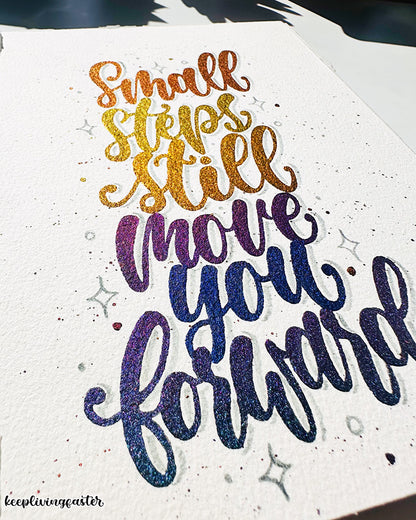 Small
Steps
Still
move
you
forward
keeplivingfaster